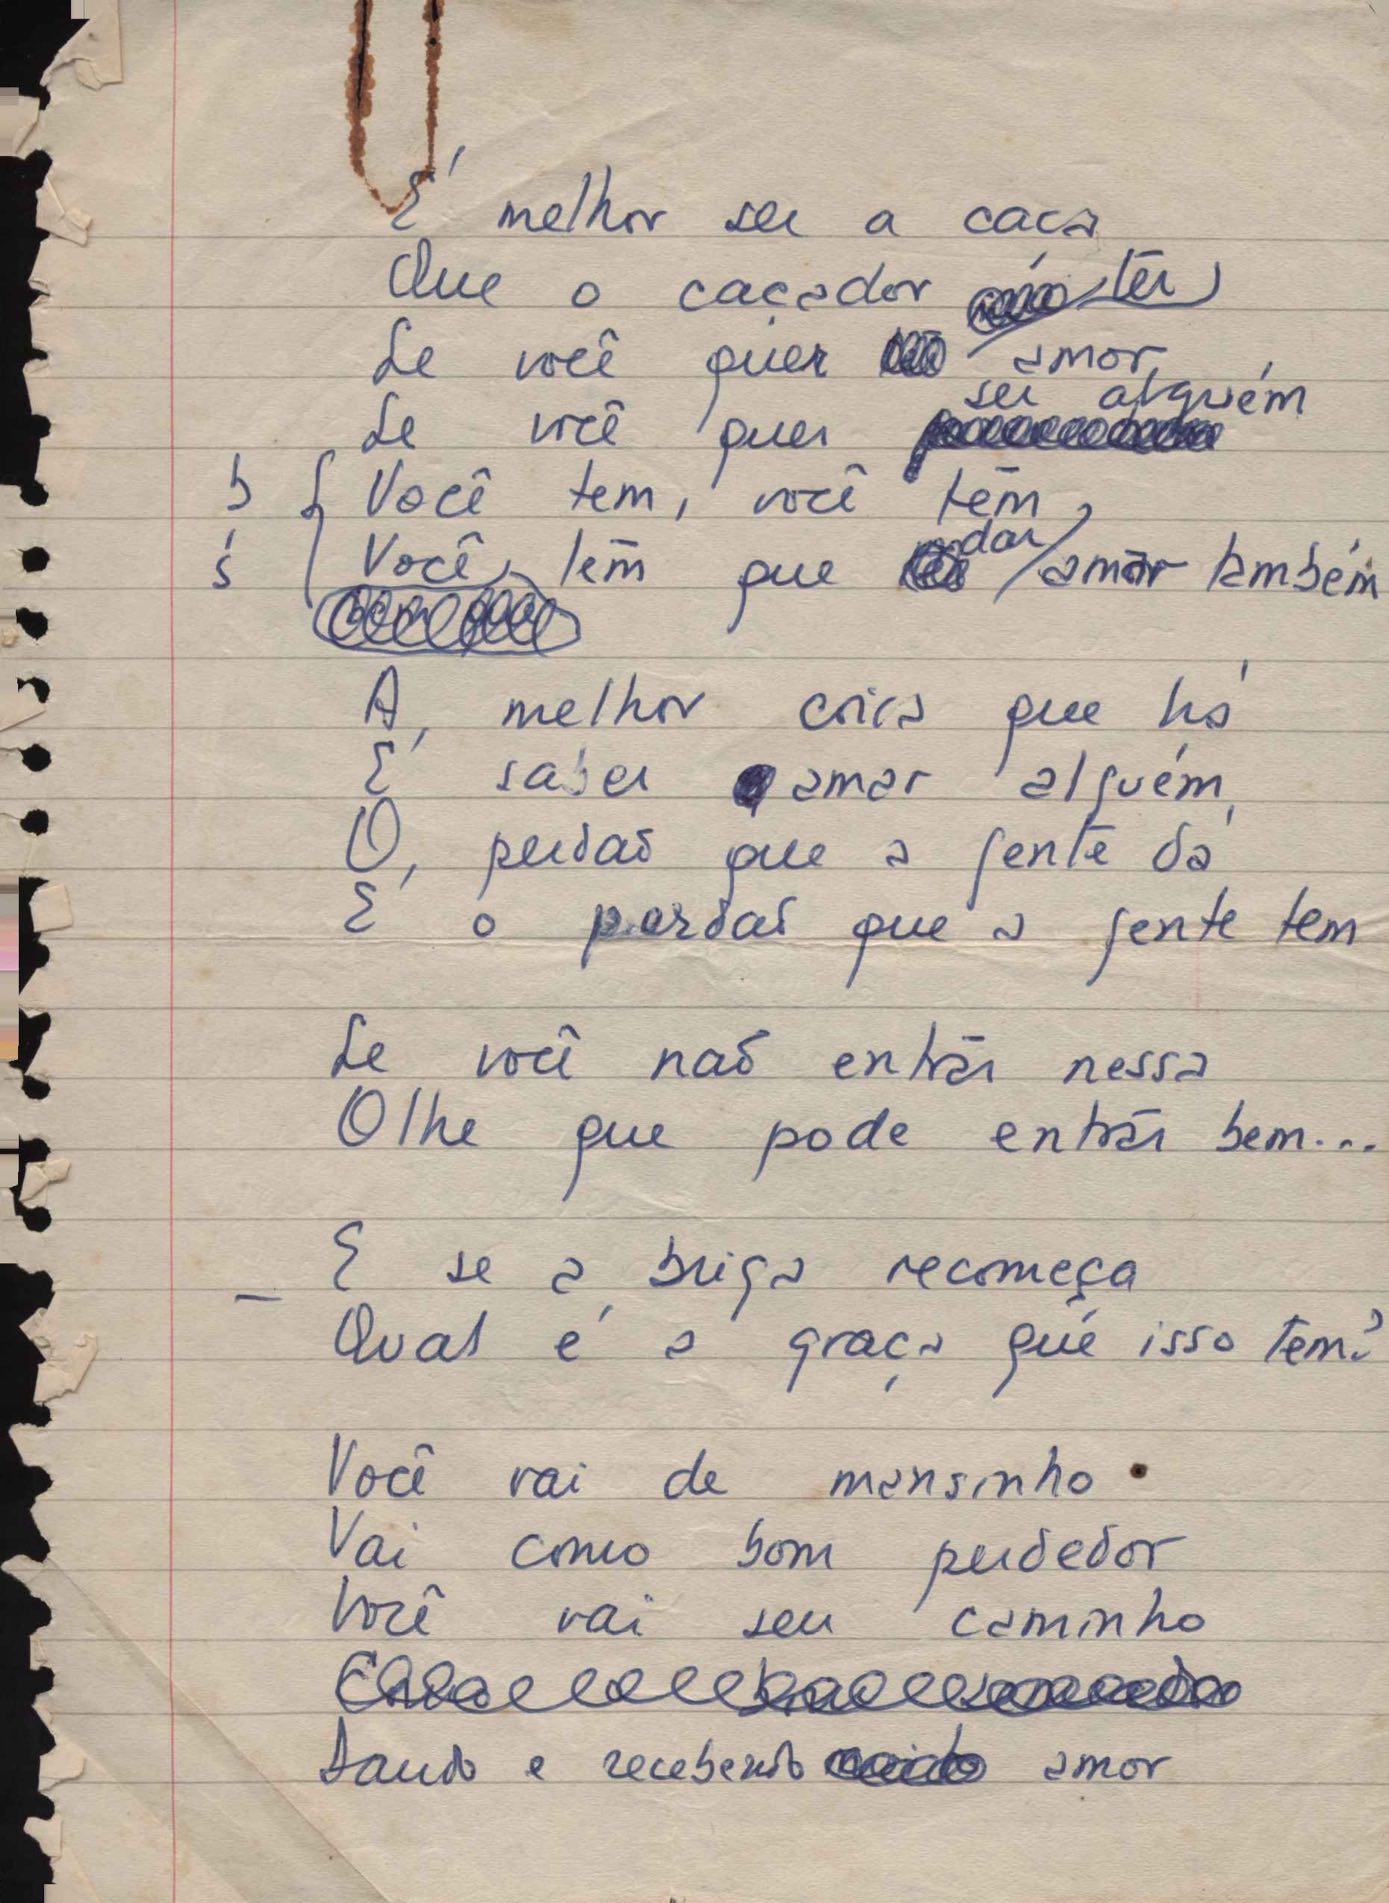 É melhor ser a caça
Que o caçador
Se você quer ter amor
Se você quer ser alguém
b { Você tem, você tem
is Você tem que dar amor também
A melhor coisa que há
É saber amar alguém
O perdão que a gente dá
É o perdão que a gente tem
Se você não entrar nessa
Olhe que pode entrar bem...
E se a briga recomeça
– Qual é a graça que isso tem?
Você vai de mansinho
Vai como bom perdedor
Você vai seu caminho
Dando e recebendo amor